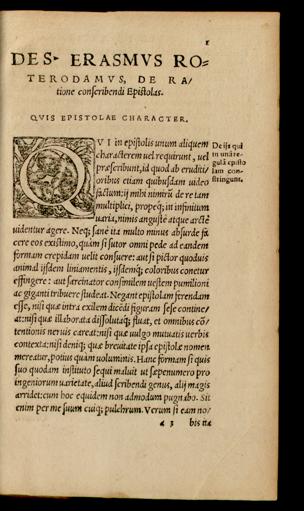 1
DES. ERASMVS RO=
TERODAMVS, DE RA/
tione conscribendi Epistolas.
QVIS EPISTOLAE CHARACTER.
QVI in epistolis unum aliquem
characterem uel requirunt, uel
præscribunt, id quod ab eruditi/
oribus etiam quibusdam uideo
factum: ij mihi nimirũ de re tam
multiplici, propeq; in infinitum
uaria, nimis angustè atque arctè
uidentur agere. Neq; sanè ita multo minus absurde fa
cere eos existimo, quàm si sutor omni pede ad eandem
formam crepidam uelit consuere: aut si pictor quoduis
animal ijsdem liniamentis, ijsdemq; coloribus conetur
effingere: aut sarcinator consimilem uestem pumilioni
ac giganti tribuere studeat. Negant epistolam ferendam
esse, nisi quæ intra exilem dicẽdi figuram sese contine/
at: nisi quæ illaborata dissolutaq; fluat, et omnibus cõ/
tentionis neruis careat: nisi quæ uulgo mutuatis uerbis
contexta: nisi deniq; quæ breuitate ipsa epistolæ nomen
mereatur, potius quàm uoluminis. Hanc formam si quis
suo quodam instituto sequi maluit ut sæpenumero pro
ingeniorum uarietate, aliud scribendi genus, alij magis
arridet: cum hoc equidem non admodum pugnabo. Sit
enim per me suum cuiq; pulchrum. Verum si eam no/
a 3 bis ita
De ijs qui
in unã re=
gulã episto
lam con=
stringunt.